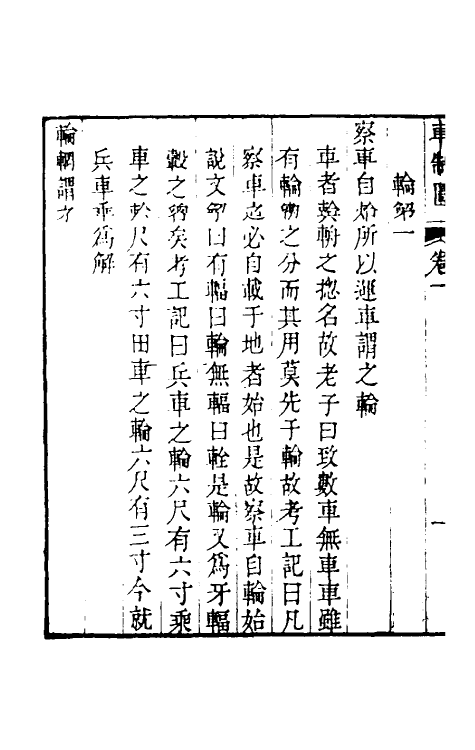 車制圖 卷一 一
輪解一
察車自始所以運車謂之輪
車者輿輈之揔名故老子曰致數車無車車雖
有輪輿之分而其用莫先于輪故考工記曰凡
察車 必自載于地者始也是故察車自輪始
說文 曰有輻曰輪無輻曰輇是輪又爲牙輻
轂之稱矣考工記曰兵車之輪六尺有六寸乘
車之 尺有六寸田車之輪六尺有三寸今就
兵車乘爲解
輪輞謂